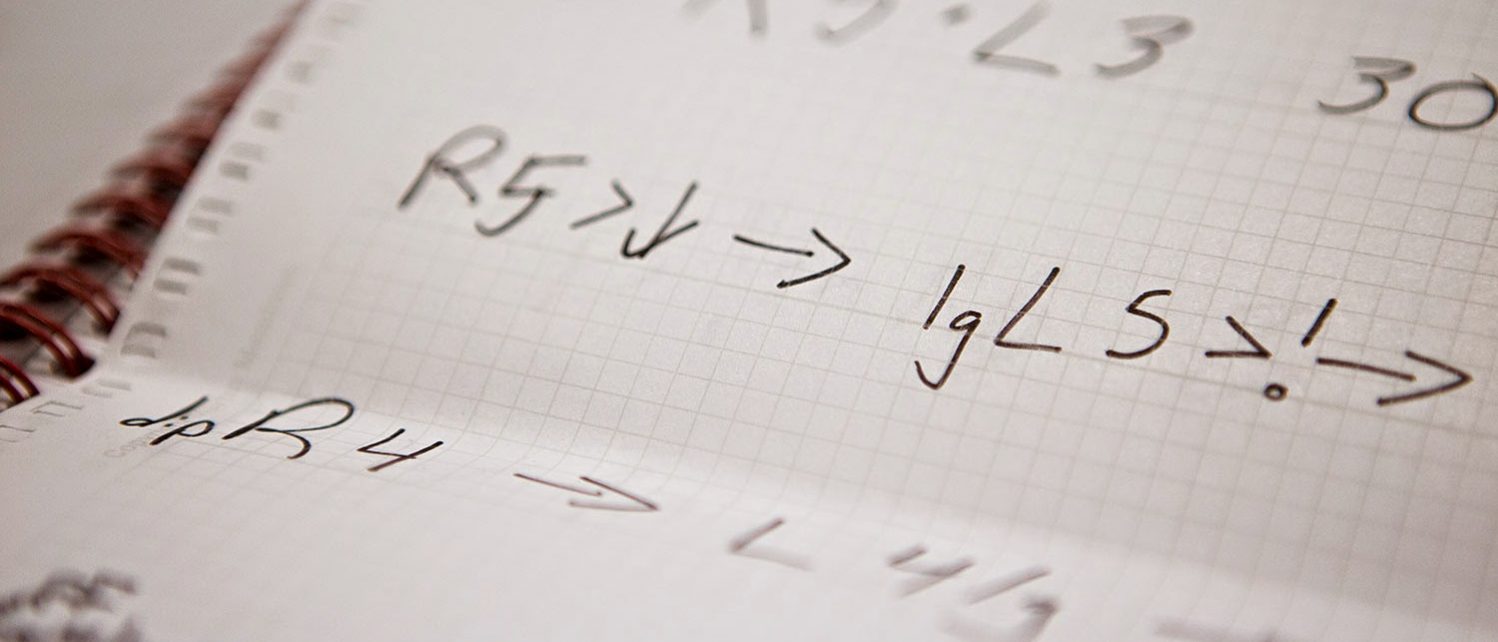 R5·L3 30
R5> → lgL 5>! →
dip R4 → L 4/g